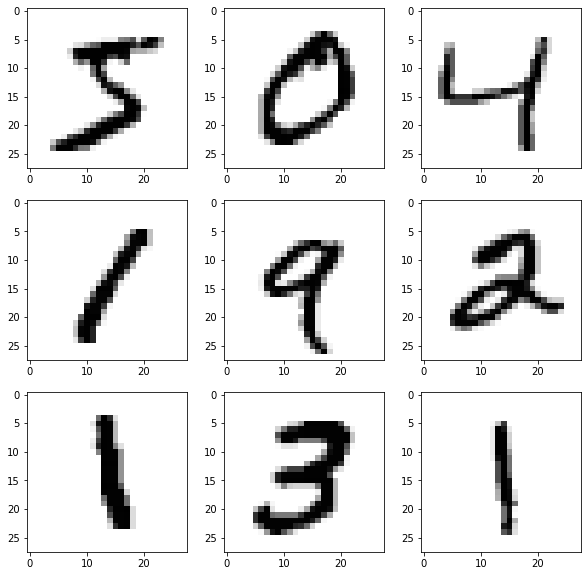 0
5
10
15
20
25
5
0 10 20
0
5
10
15
20
25
0
0 10 20
0
5
10
15
20
25
4
0 10 20
0
5
10
15
20
25
1
0 10 20
0
5
10
15
20
25
9
0 10 20
0
5
10
15
20
25
2
0 10 20
0
5
10
15
20
25
1
0 10 20
0
5
10
15
20
25
3
0 10 20
0
5
10
15
20
25
1
0 10 20